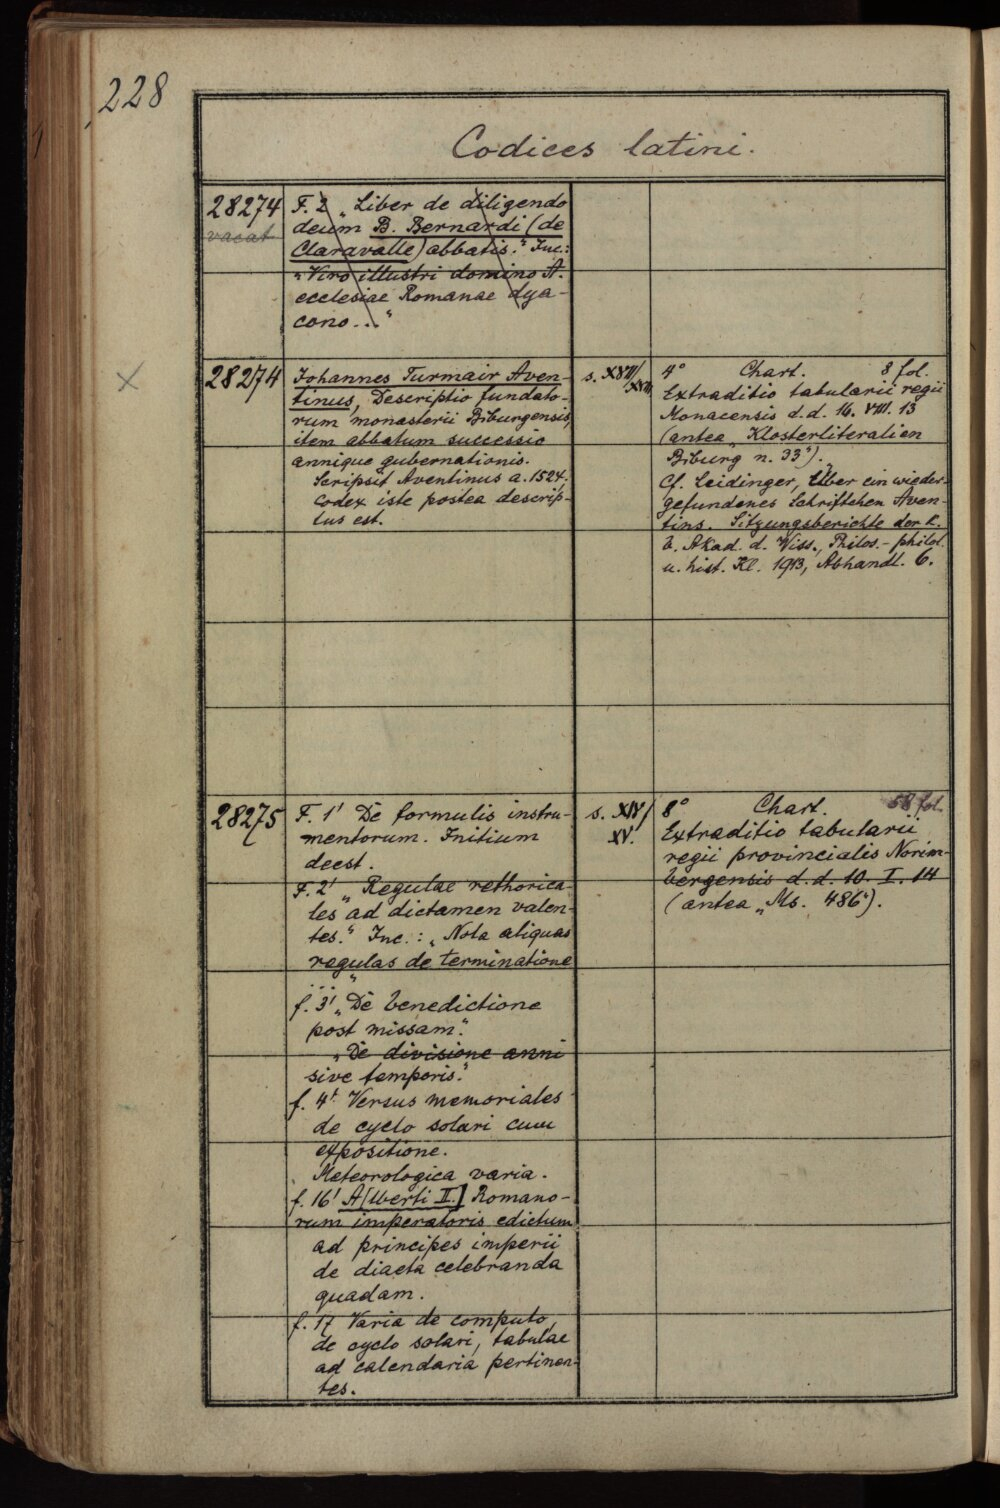 228
Codices latini.
28274
vacat
F. 2 „Liber de diligendo
deum B. Bernardi (de
Claravalle) abbatis." Inc.:
„Viro illustri domino A.
ecclesiae Romanae dya-
cono..."
28274
Johannes Turmair Aven-
tinus, Descriptio fundato-
rum monasterii Biburgensis,
item abbatum successio
annique gubernationis.
Scripsit Aventinus a. 1524,
codex iste postea descrip-
tus est.
s. XVI/
XVII
4° Chart. 8 fol.
Extraditio tabularii regii
Monacensis d.d. 16. VIII. 13
(antea „Klosterliteralien
Biburg n. 33").
Cf. Leidinger, Über ein wieder-
gefundenes Schriftchen Aven-
tins. Sitzungsberichte der k.
b. Akad. d. Wiss., Philos.-philol.
u. hist. Kl. 1913, Abhandl. 6.
28275
F. 1' De formulis instru-
mentorum. Initium
deest.
F. 2' „Regulae rethorica-
les ad dictamen valen-
tes." Inc.: „Nota aliquas
regulas de terminatione
..."
f. 3' „De benedictione
post missam."
„De divisione anni
sive temporis."
f. 4r Versus memoriales
de cyclo solari cum
expositione.
Meteorologica varia.
f. 16' A[lberti II.] Romano-
rum imperatoris edictum
ad principes imperii
de diaeta celebranda
quadam.
f. 17 Varia de computo,
de cyclo solari, tabulae
ad calendaria pertinen-
tes.
s. XIV/
XV.
8° Chart. 58 fol.
Extraditio tabularii
regii provincialis Norim-
bergensis d.d. 10. I. 14
(antea „Ms. 486").